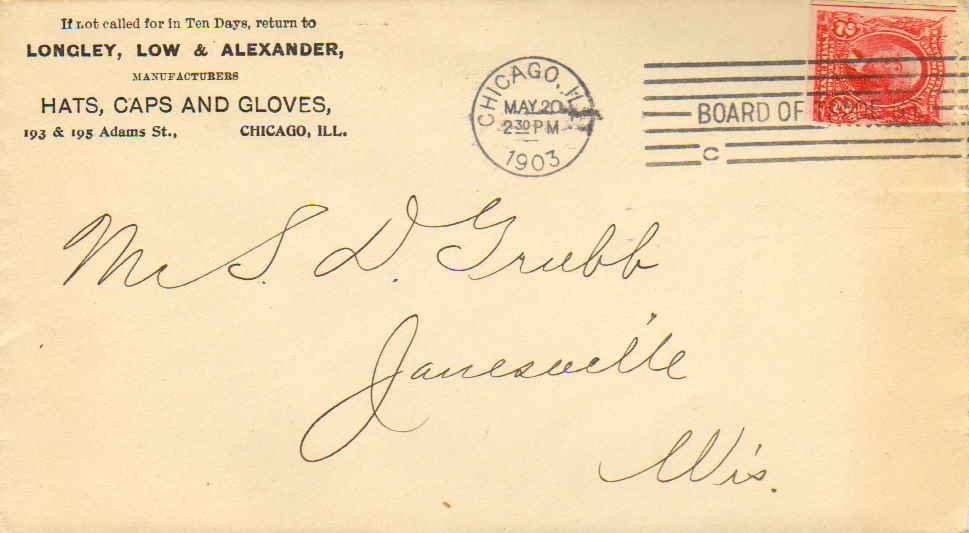 If not called for in Ten Days, return to
LONGLEY, LOW & ALEXANDER,
MANUFACTURERS
HATS, CAPS AND GLOVES,
193 & 195 Adams St., CHICAGO, ILL.
CHICAGO, ILL.
MAY 20
2 30 PM
1903
BOARD OF TRADE
C
Mr S. D. Grubb
Janesville
Wis.